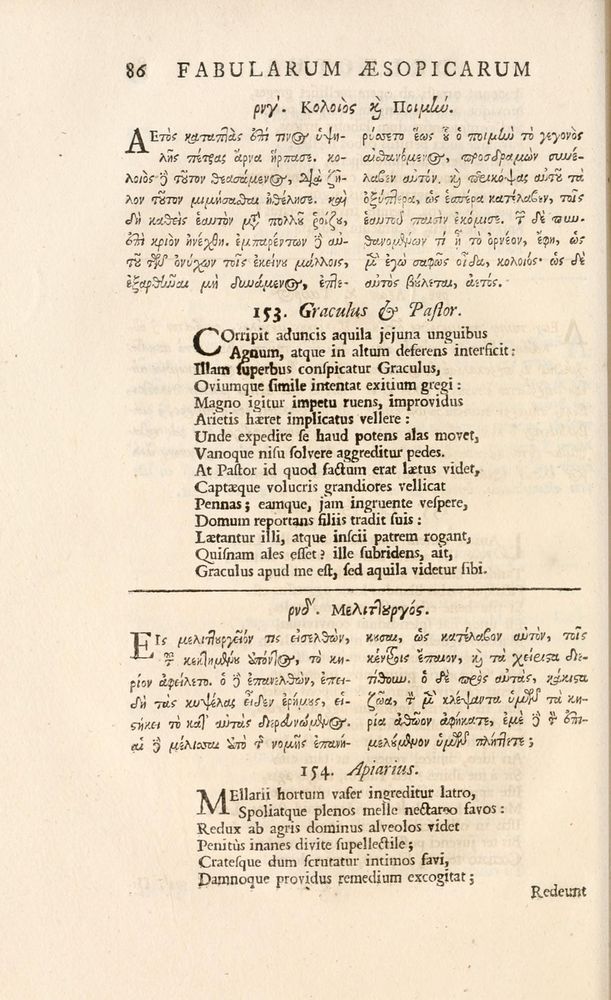 86 FABULARUM ÆSOPICARUM
ρνγʹ. Κολοιὸς κὶ Ποιμὼ.
ΑΕτὸς καταπλὰς ἐπί τινος ὑψη-
λῆς πέτρας ἄρνα ἥρπασε. κο-
λοιὸς ἢ τῦτον θεασάμενος, διὰ ζῆ-
λον τῦτον μιμήσαθαι ἠθέλησε. καὶ
δὴ καθεὶς ἑαυτὸν μτ̃ πολλῦ ῥοίζυ,
ἐπὶ κριὸν ἠνέχθη. ἐμπαρέντων ἢ αὐ-
τῦ τῶν ὀνύχων τοῖς ἐκείνυ μάλλοις,
ἐξαρθῆναι μὴ δυνάμενος, ἐπλε-
ρύοσετο ἕως ὗ ὁ ποιμὼ τὸ γεγονὸς
αἰθανόμενος, προσδραμὼν συνέ-
λαβεν αὐτόν. κὶ περικόψας αὐτῦ τὰ
ὀξύπλερα, ὡς ἑσπέρα κατέλαβεν, τοῖς
ἑαυτοῦ παισὶν ἐκόμισε. τ̃ δὲ πυν-
θανομένων τί ἢ τὸ ὀρνέον, ἔφη, ὡς
μ̃ ἐγὼ σαφῶς οἶδα, κολοιός· ὡς δὲ
αὐτὸς βύλεται, ἀετός.
153. Graculus & Pastor.
COrripit aduncis aquila jejuna unguibus
Agnum, atque in altum deferens interficit:
Illam superbus conspicatur Graculus,
Oviumque simile intentat exitium gregi:
Magno igitur impetu ruens, improvidus
Arietis hæret implicatus vellere:
Unde expedire se haud potens alas movet,
Vanoque nisu solvere aggreditur pedes.
At Pastor id quod factum erat lætus videt,
Captæque volucris grandiores vellicat
Pennas; eamque, jam ingruente vespere,
Domum reportans filiis tradit suis:
Lætantur illi, atque inscii patrem rogant,
Quisnam ales esset? ille subridens, ait,
Graculus apud me est, sed aquila videtur sibi.
ρνδʹ. Μελιτυργός.
ΕΙς μελιτυργεῖόν τις εἰσελθὼν,
τ̃ κεκτημένυ ἀπόντος, τὸ κη-
ρίον ἀφείλετο. ὁ ἢ ἐπανελθὼν, ἐπει-
δὴ τὰς κυψέλας εἶδεν ἐρήμυς, εἱ-
στήκει τὸ κατʼ αὐτὰς διερευνώμενος.
αἱ ἢ μέλισσαι ἀπὸ τ̃ νομῆς ἐπανή-
κυσαι, ὡς κατέλαβον αὐτὸν, τοῖς
κέντροις ἔπαιον, κὶ τὰ χείριστα διε-
τίθουν. ὁ δὲ πρὸς αὐτάς, κάκιστα
ζῶα, τ̃ μ̃ κλέψαντα ὑμῶν τὰ κη-
ρία ἀθῶον ἀφήκατε, ἐμὲ ἢ τ̃ ἐπι-
μελύμενον ὑμῶν πλήττετε;
154. Apiarius.
MEllarii hortum vafer ingreditur latro,
Spoliatque plenos melle nectareo favos:
Redux ab agris dominus alveolos videt
Penitùs inanes divite supellectile;
Cratesque dum scrutatur intimos favi,
Damnoque providus remedium excogitat;
Redeunt